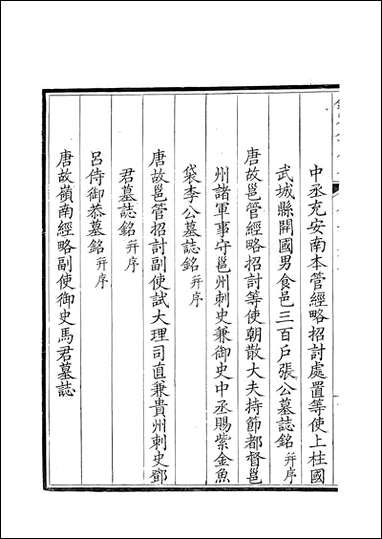 中丞充安南本管經略招討處置等使上柱國
武城縣開國男食邑三百戶張公墓誌銘并序
唐故邕管經略招討等使朝散大夫持節都督邕
州諸軍事守邕州刺史兼御史中丞賜紫金魚
袋李公墓誌銘并序
唐故邕管招討副使試大理司直兼貴州刺史鄧
君墓誌銘并序
呂侍御恭墓銘并序
唐故嶺南經略副使御史馬君墓誌